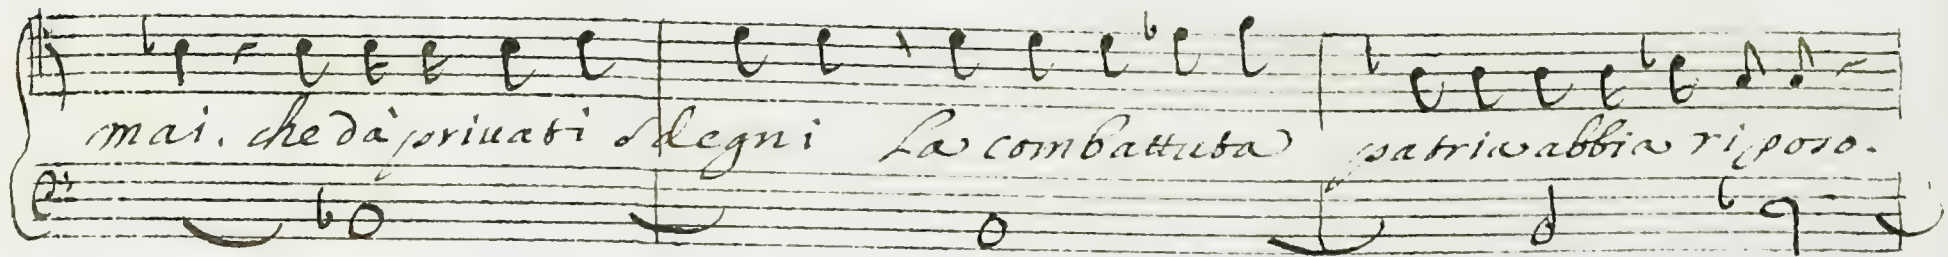 mai. che dà priuati sdegni La combattuta patria abbia riposo.